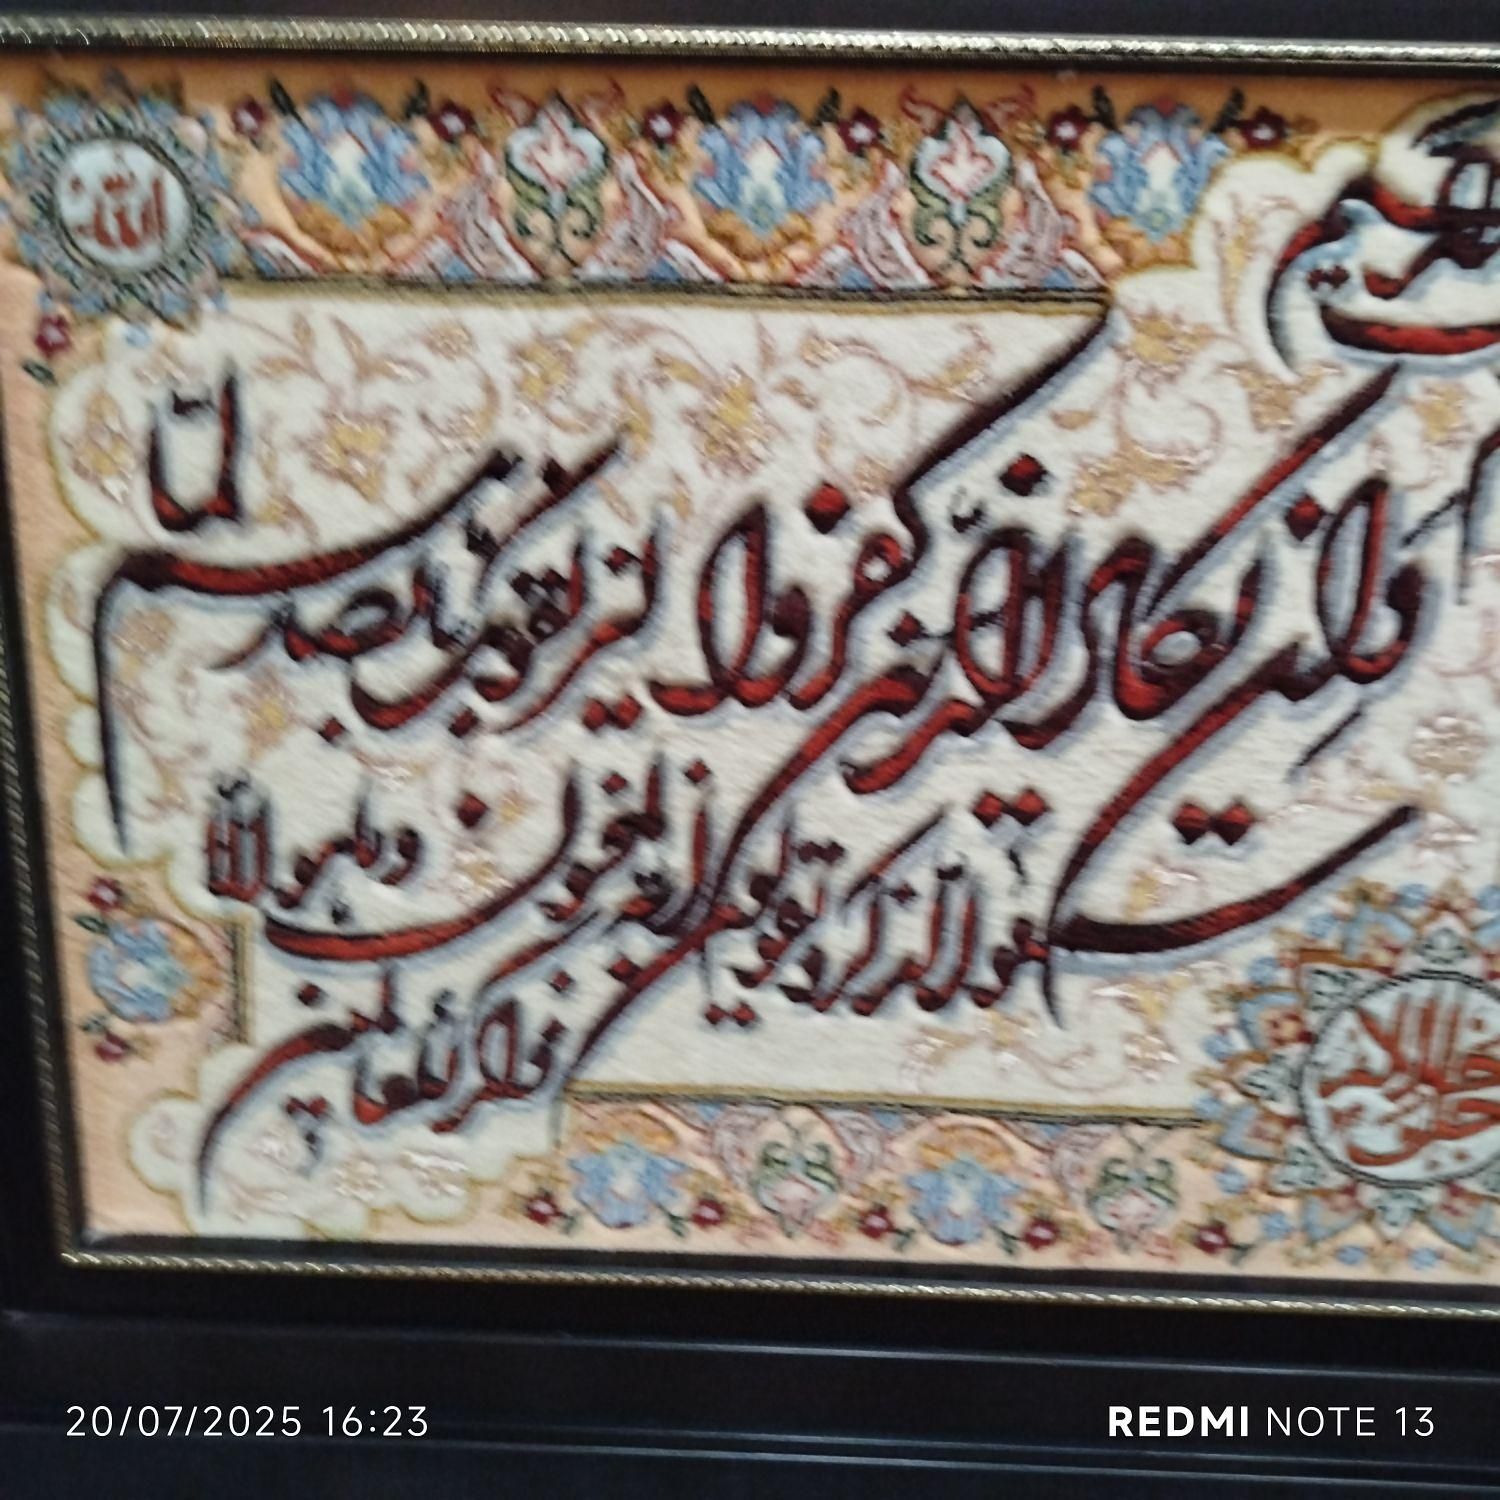 الله
وان يكاد الذين كفروا ليزلقونك بابصارهم لما
سمعوا الذكر ويقولون انه لمجنون وما هو الا
ذكر للعالمين
جل جلاله
20/07/2025 16:23
REDMI NOTE 13